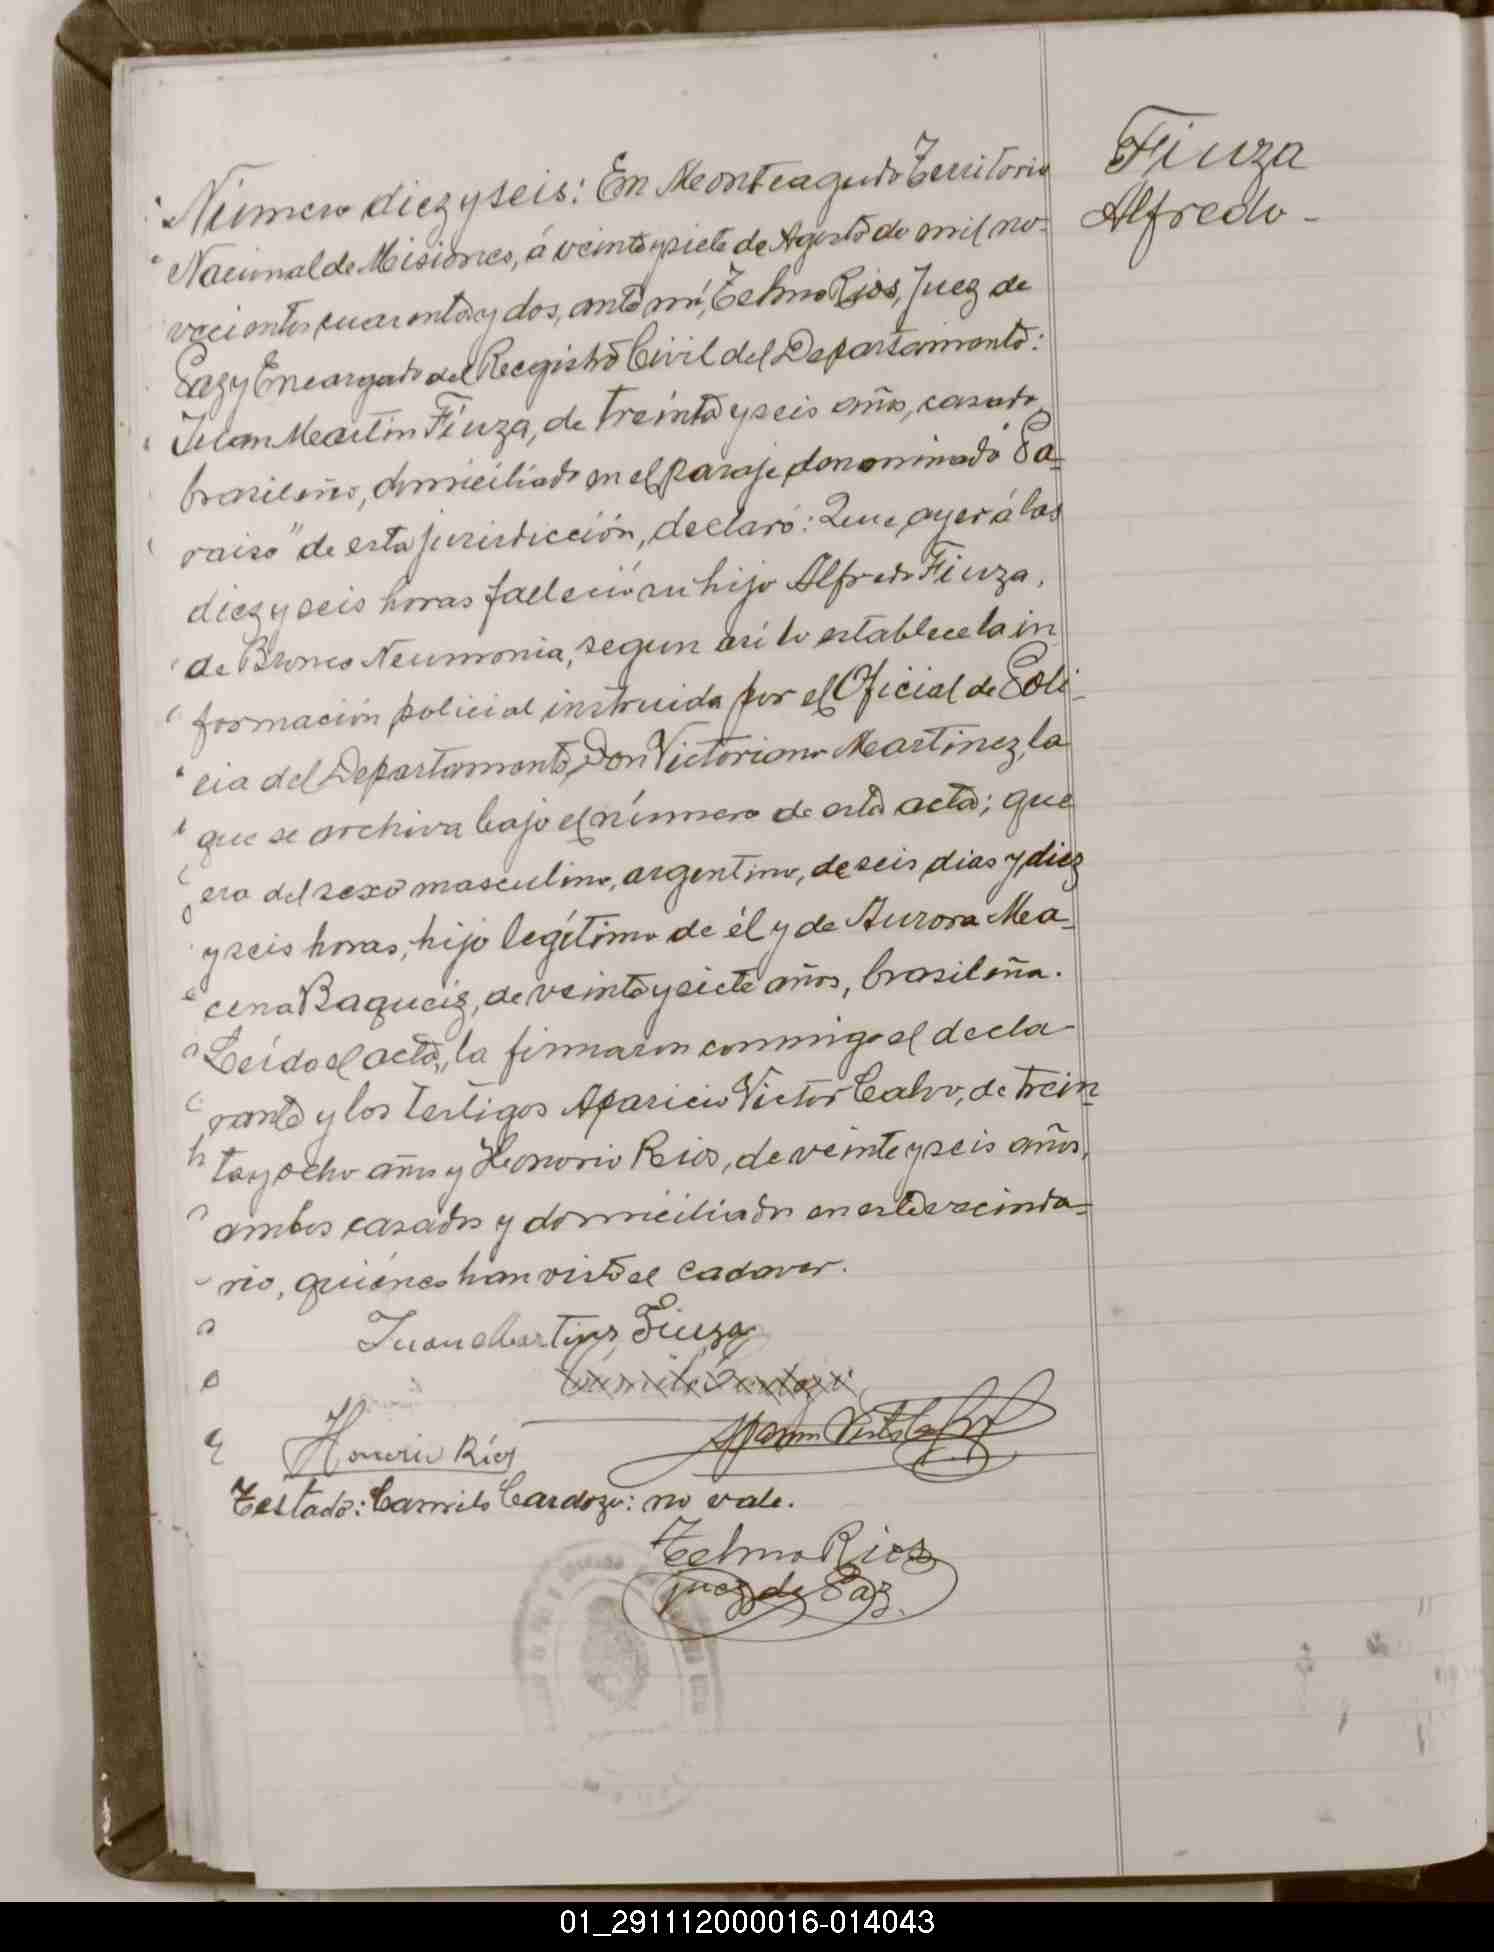 Fiuza
Alfredo -
Número diez y seis: En Monteagudo Territorio
Nacional de Misiones, á veinte y siete de Agosto de mil no-
vecientos cuarenta y dos, ante mí, Telmo Rios, Juez de
Paz y Encargado del Registro Civil del Departamento:
Juan Martin Fiuza, de treinta y seis años, casado,
brasileño, domiciliado en el paraje denominado "Pa-
raiso" de esta jurisdicción, declaró: Que ayer á las
diez y seis horas falleció su hijo Alfredo Fiuza,
de Bronco Neumonia, segun así lo establece la in
formación policial instruida por el Oficial de Poli-
cia del Departamento, Don Victoriano Martinez, la
que se archiva bajo el número de esta acta; que
era del sexo masculino, argentino, de seis dias y diez
y seis horas, hijo legítimo de él y de Aurora Ma-
cena Baqueiz, de veinte y siete años, brasileña.
Leído el acta, la firmaron conmigo el decla
rante y los testigos Aparicio Victor Calvo, de trein-
ta y ocho años y Honorio Rios, de veinte y seis años,
ambos casados y domiciliados en este vecinda-
rio, quiénes han visto el cadaver.
Juan Martins Fiuza
Camilo Cardozo
Honorio Ríos
Testado: Camilo Cardozo: no vale.
Telmo Rios
juez de Paz.
01_291112000016-014043